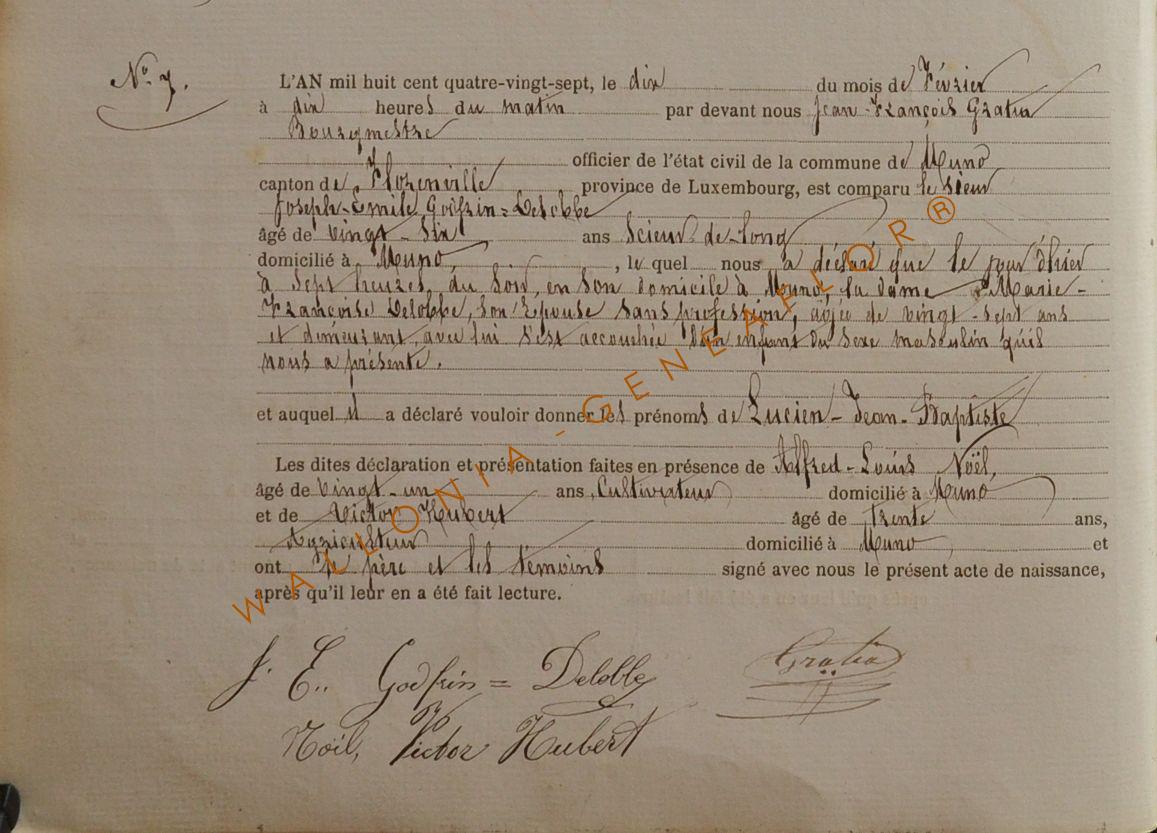 N° 7.
L'AN mil huit cent quatre-vingt-sept, le dix du mois de Février
à dix heures du matin par devant nous Jean-François Gratia
Bourgmestre
officier de l'état civil de la commune de Muno
canton de Florenville province de Luxembourg, est comparu le sieur
Joseph-Emile Godfrin=Delobbe
âgé de vingt-six ans Scieur de-long
domicilié à Muno, , le quel nous a déclaré que le jour d'hier
à sept heures, du soir, en son domicile à Muno, la dame Marie-
Françoise Delobbe, son Epouse sans profession, agée de vingt-sept ans
et demeurant, avec lui s'est accouchée d'un enfant du sexe masculin qu'il
nous a présenté.
et auquel il a déclaré vouloir donner les prénoms de Lucien-Jean-Baptiste
Les dites déclaration et présentation faites en présence de Alfred-Louis Noël,
âgé de vingt-un ans, Cultivateur domicilié à Muno
et de Victor Hubert âgé de trente ans,
Agriculteur domicilié à Muno, et
ont le père et les témoins signé avec nous le présent acte de naissance,
après qu'il leur en a été fait lecture.
J. E. Godfrin=Delobbe Gratia
Noël, Victor Hubert
WALLONIA-GENEAFLOR®